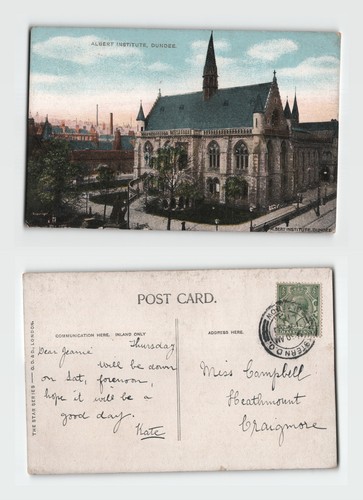 ALBERT INSTITUTE, DUNDEE.
ALBERT INSTITUTE, DUNDEE
POST CARD.
COMMUNICATION HERE. INLAND ONLY
ADDRESS HERE.
THE STAR SERIES — G.D. & D., LONDON.
Thursday
Dear Jeanie
will be down
on Sat, forenoon,
hope it will be a
good day.
Kate
Miss Campbell
Heathmount
Craigmore